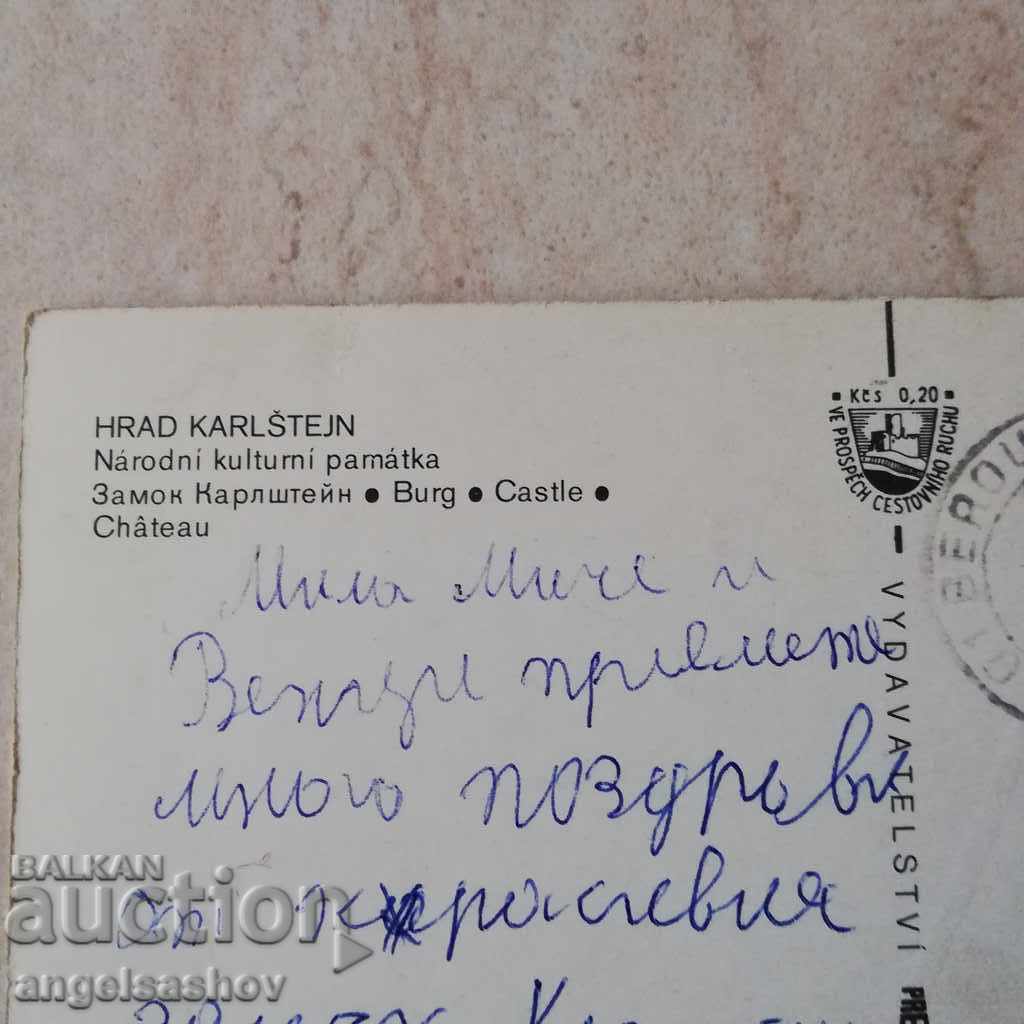 HRAD KARLŠTEJN
Národní kulturní památka
Замок Карлштейн ● Burg ● Castle ●
Château
Мила Миче и
Венци приемете
много поздрави
от красивия
замък
Kčs 0,20
VE PROSPĚCH CESTOVNÍHO RUCHU
BEROU
01
VYDAVATELSTVÍ PRE
BALKAN
auction
angelsashov